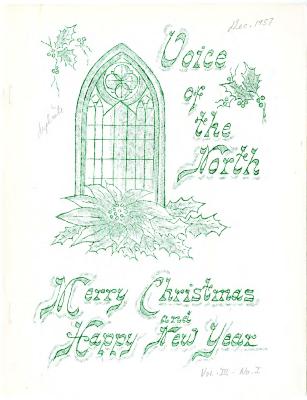 Dec. 1957
Voice
of
the
North
Merry Christmas
and
Happy New Year
Vol. III - No. I